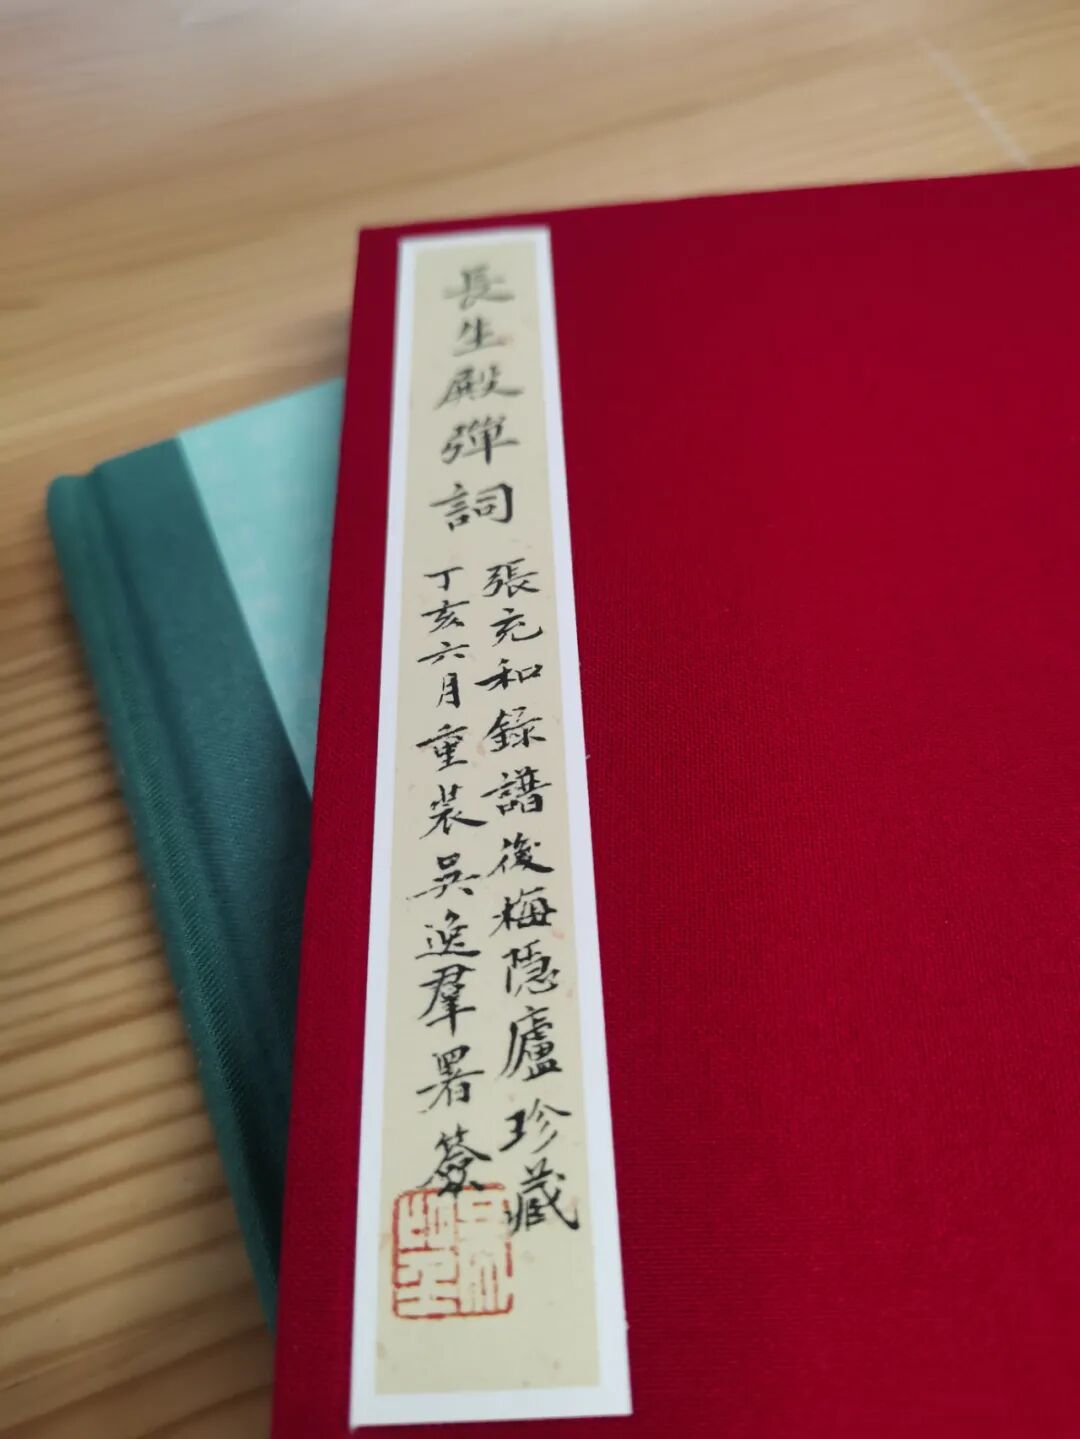 長生殿彈詞
張充和錄譜後梅隱廬珍藏
丁亥六月重裝吳逸羣署簽